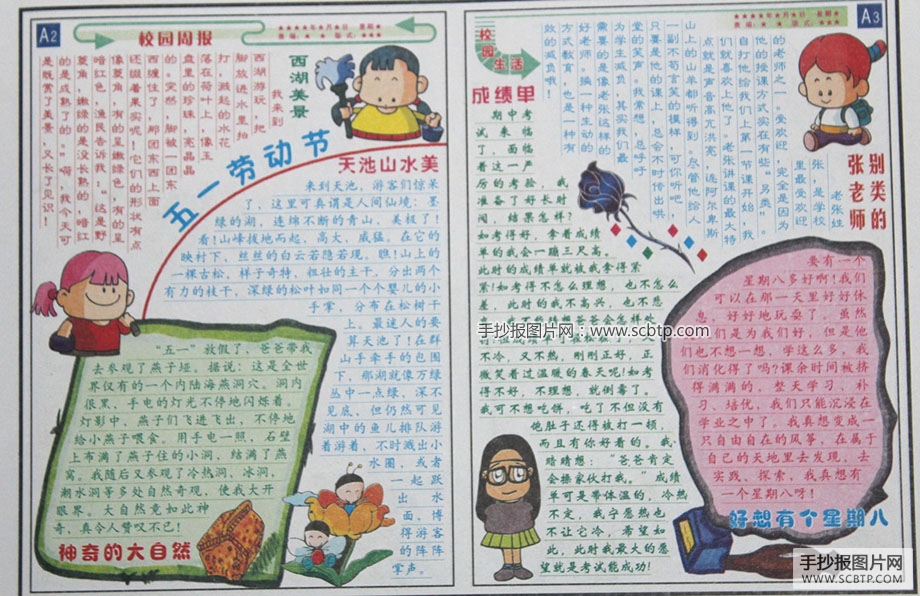 A2
校园周报
★★★★年★月★日 星期★
责编:★ ★ 版式:★★★
西湖美景
我来到
西湖游玩，把
脚放进水里拍
打，溅起的水花
落在荷叶上，像玉
盘里的珍珠，亮晶晶
的。突然，脚被一团东
西缠住了，那团东西上面
还缀着果实呢！它们的形状有点
像菱角，有的呈嫩绿色，有的呈
暗红色，渔民告诉我：“这是野
菱角，嫩绿的是没长熟的，暗红
的是成熟了的。”啊，我今天可
是既赏了美景，又长了见识！
五一劳动节
天池山水美
来到天池，游客们惊呆
了，这里可真谓是人间仙境：墨
绿的湖，连绵不断的青山，美极了！
看！山峰拔地而起，高大，威猛。在它的
映衬下，丝丝的白云若隐若现。瞧！山上的
一棵古松，样子奇特，粗壮的主干，分出两个
有力的枝干，深绿的松叶如同一个个婴儿的小
手掌，分布在松树干
上。最迷人的要
算天池了！在群
山手牵手的包围
下，那湖就像万绿
丛中一点绿，深不
见底，但仍然可见
湖中的鱼儿排队游
着游着，不时溅出小
水圈，或者
一起跃
出水
面、博
得游客
的阵阵
掌声。
“五一”放假了，爸爸带我
去参观了燕子垭。据说：这是全世
界仅有的一个内陆海燕洞穴。洞内
很黑、手电的灯光不停地闪烁着。
灯影中、燕子们飞进飞出，不停地
给小燕子喂食。用手电一照，石壁
上布满了燕子住的小洞、结满了燕
窝。我随后又参观了冷热洞 冰洞、
潮水洞等多处自然奇观，使我大开
眼界。大自然竟如此神
奇、真令人赞叹不已！
神奇的大自然
A3
★★★★年★月★日 星期★
责编:★ ★ 版式:★★★
校园生活
别类的张老师
老张姓
张，是学校
里最受欢迎
的老师之一。受欢迎，完全是因为
他的授课方式实在有些“另类”。
自打他给我们上第一节课开始，我
们就喜欢上他了。老张讲课的最大特
点就是声音高亢洪亮，连阿尔卑斯
山上的山羊都听得到。尽管他给人
一副不苟言笑的模样，可你听吧，
只要是他的课上，总会不时传出哄
堂的笑声。我常想，总呼吁
为学生减负，其实我们最
需要的是像老张这样的
好老师，换一种生动的
方式教育，也是一种有
效的减负哦！
成绩单
期中考
试来临
了，面临
着这一严
厉的考验，我
准备了好长时
间，结果怎样？
如考得好，拿着成绩
单的我会一蹦三尺高。
此时的成绩单就被我拿得紧
紧！如考得不怎么理想，也不怎么
差，此时的我不高兴，也不悲
不冷、又不热，刚刚正好，正
微笑着过温暖的春天呢！如考
得不好，不理想，就倒霉了。
我可不想吃饼，吃了不但没有
饱肚子还得被打一顿，
而且有你好看的。我
暗暗想：“爸爸肯定
会操家伙打我。”成绩
单可是带体温的，冷热
不定，我宁愿热也
不让它冷，希望如
此，此时我最大的愿
望就是考试能成功！
要有一个
星期八多好啊！我们
可以在那一天里好好休
息，好好地玩耍了。虽然
们是为我们好，但是他
们也不想一想，学这么多，我
们消化得了吗？课余时间被挤
得满满的。整天学习、补
习、培优，我们只能沉浸在
学业之中了。我真想变成一
只自由自在的风筝，在属于
自己的天地里去发现，去
实践、探索，我真想有
一个星期八呀！
好想有个星期八
手抄报图片网：www.scbtp.com
手抄报图片网
WWW.SCBTP.COM